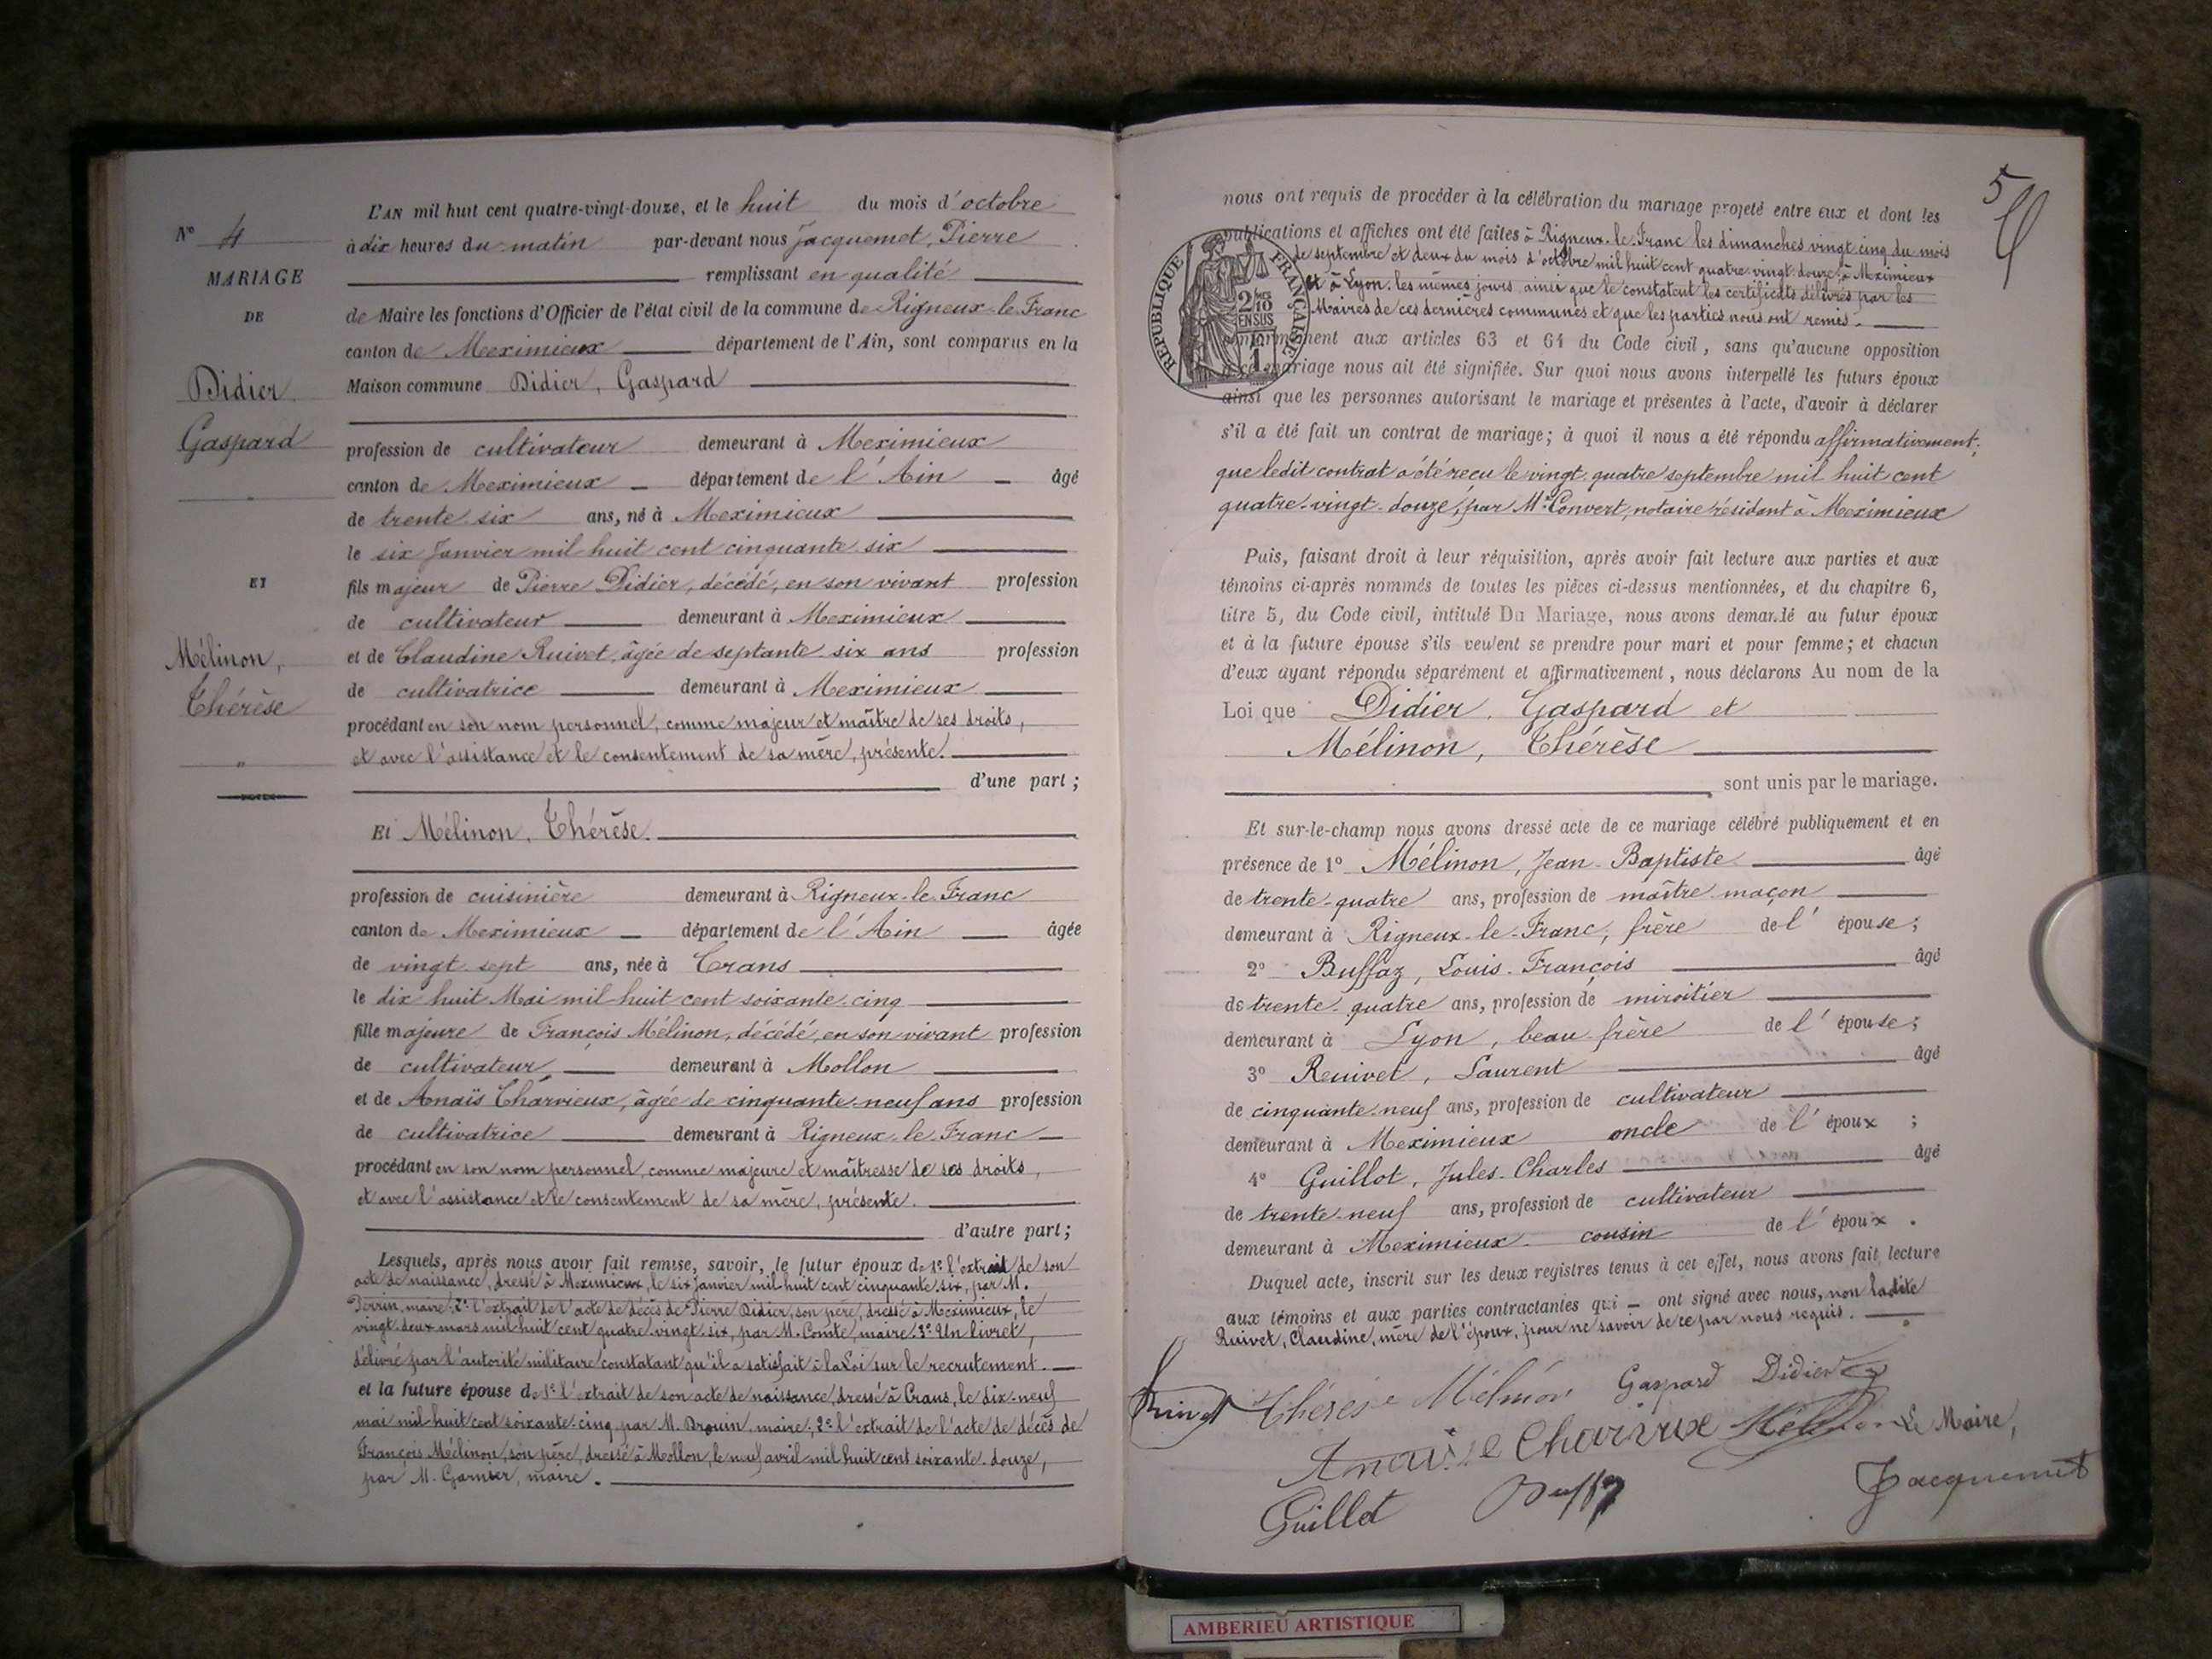 L'AN mil huit cent quatre-vingt-douze, et le huit du mois d'octobre
à dix heures du matin par-devant nous Jacquemet, Pierre
remplissant en qualité
de Maire les fonctions d'Officier de l'état civil de la commune de Rigneux-le-Franc
canton de Meximieux département de l'Ain, sont comparus en la
Maison commune Didier, Gaspard
profession de cultivateur demeurant à Meximieux
canton de Meximieux département de l'Ain âgé
de trente six ans, né à Meximieux
le six Janvier mil huit cent cinquante six
fils majeur de Pierre Didier, décédé, en son vivant profession
de cultivateur demeurant à Meximieux
et de Claudine Ruivet, âgée de septante-six ans profession
de cultivatrice demeurant à Meximieux
procédant en son nom personnel, comme majeur et maître de ses droits,
et avec l'assistance et le consentement de sa mère, présente.
d'une part ;
Et Mélinon, Thérèse.
profession de cuisinière demeurant à Rigneux-le-Franc
canton de Meximieux département de l'Ain âgée
de vingt-sept ans, née à Crans
le dix huit Mai mil huit cent soixante-cinq
fille majeure de François Mélinon, décédé, en son vivant profession
de cultivateur, demeurant à Mollon
et de Anaïs Charvieux, âgée de cinquante-neuf ans profession
de cultivatrice demeurant à Rigneux-le-Franc
procédant en son nom personnel, comme majeure et maîtresse de ses droits,
et avec l'assistance et le consentement de sa mère, présente.
d'autre part ;
Lesquels, après nous avoir fait remise, savoir, le futur époux de 1° l'extrait de son
acte de naissance, dressé à Meximieux, le six janvier mil huit cent cinquante-six, par M.
Perrin, maire; 2° l'extrait de l'acte de décès de Pierre Didier, son père, dressé à Meximieux, le
vingt-deux mars mil huit cent quatre-vingt-six, par M. Comte, maire; 3° Un livret,
délivré par l'autorité militaire constatant qu'il a satisfait à la Loi sur le recrutement.
et la future épouse de 1° l'extrait de son acte de naissance, dressé à Crans, le dix-neuf
mai mil huit cent soixante-cinq, par M. Drouin, maire; 2° l'extrait de l'acte de décès de
François Mélinon, son père, dressé à Mollon, le neuf avril mil huit cent soixante-douze,
par M. Garnier, maire.
N° 4
MARIAGE
DE
Didier,
Gaspard
ET
Mélinon,
Thérèse
"
5
nous ont requis de procéder à la célébration du mariage projeté entre eux et dont les
publications et affiches ont été faites à Rigneux-le-Franc les dimanches vingt-cinq du mois
de septembre et deux du mois d'octobre mil huit cent quatre-vingt-douze, à Meximieux
et à Lyon, les mêmes jours, ainsi que le constatent les certificats délivrés par les
Maires de ces dernières communes et que les parties nous ont remis.
REPUBLIQUE FRANÇAISE
2/10 EN SUS
conformément aux articles 63 et 64 du Code civil, sans qu'aucune opposition
à ce mariage nous ait été signifiée. Sur quoi nous avons interpellé les futurs époux
ainsi que les personnes autorisant le mariage et présentes à l'acte, d'avoir à déclarer
s'il a été fait un contrat de mariage; à quoi il nous a été répondu affirmativement;
que ledit contrat a été reçu le vingt-quatre septembre mil huit cent
quatre-vingt-douze, par Me Convert, notaire résidant à Meximieux
Puis, faisant droit à leur réquisition, après avoir fait lecture aux parties et aux
témoins ci-après nommés de toutes les pièces ci-dessus mentionnées, et du chapitre 6,
titre 5, du Code civil, intitulé Du Mariage, nous avons demandé au futur époux
et à la future épouse s'ils veulent se prendre pour mari et pour femme; et chacun
d'eux ayant répondu séparément et affirmativement, nous déclarons Au nom de la
Loi que Didier, Gaspard et
Mélinon, Thérèse
sont unis par le mariage.
Et sur-le-champ nous avons dressé acte de ce mariage célébré publiquement et en
présence de 1° Mélinon, Jean-Baptiste âgé
de trente-quatre ans, profession de maître maçon
demeurant à Rigneux-le-Franc, frère de l'épouse;
2° Buffaz, Louis-François âgé
de trente-quatre ans, profession de miroitier
demeurant à Lyon, beau-frère de l'épouse;
3° Reuivet, Laurent âgé
de cinquante-neuf ans, profession de cultivateur
demeurant à Meximieux oncle de l'époux ;
4° Guillot, Jules-Charles âgé
de trente-neuf ans, profession de cultivateur
demeurant à Meximieux cousin de l'époux.
Duquel acte, inscrit sur les deux registres tenus à cet effet, nous avons fait lecture
aux témoins et aux parties contractantes qui ont signé avec nous, non ladite
Ruivet, Claudine, mère de l'époux, pour ne savoir de ce par nous requis.
Thérèse Mélinon Gaspard Didier
Ruivet
Anaïse Charvieux Mélinon Le Maire,
Guillot Buffaz Jacquemet
AMBERIEU ARTISTIQUE